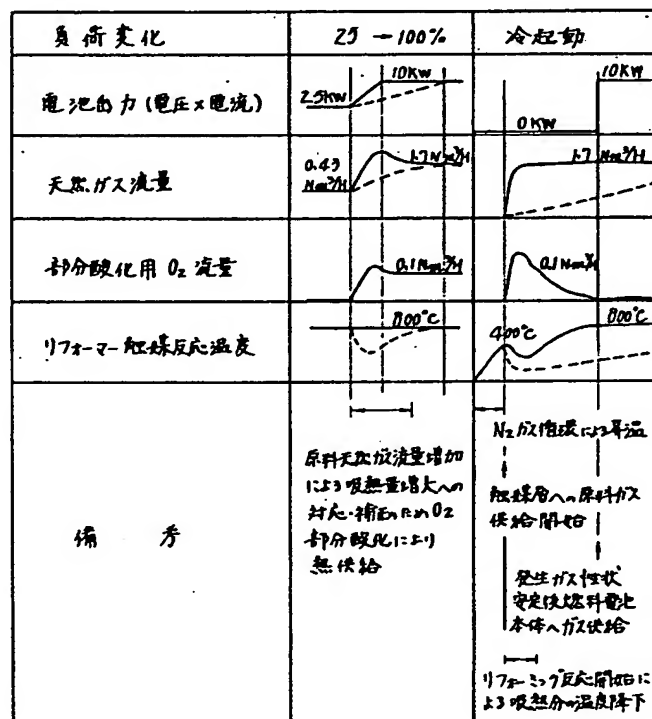 負荷変化 25→100% 冷起動
電池出力(電圧×電流) 2.5KW 10KW 0KW 10KW
天然ガス流量 0.43 Nm³/H 1.7Nm³/H 1.7 Nm³/H
部分酸化用O₂流量 0.1Nm³/H 0.1Nm³/H
リフォーマー触媒反応温度 800℃ 400℃ 800℃
備考
原料天然ガス流量増加
による吸熱量増大への
対応・補正のためO₂
部分酸化により
熱供給
N₂ガス循環による昇温
触媒層への原料ガス
供給開始
発生ガス性状
安定後燃料電池
本体へガス供給
リフォーミング反応開始に
よる吸熱分の温度降下